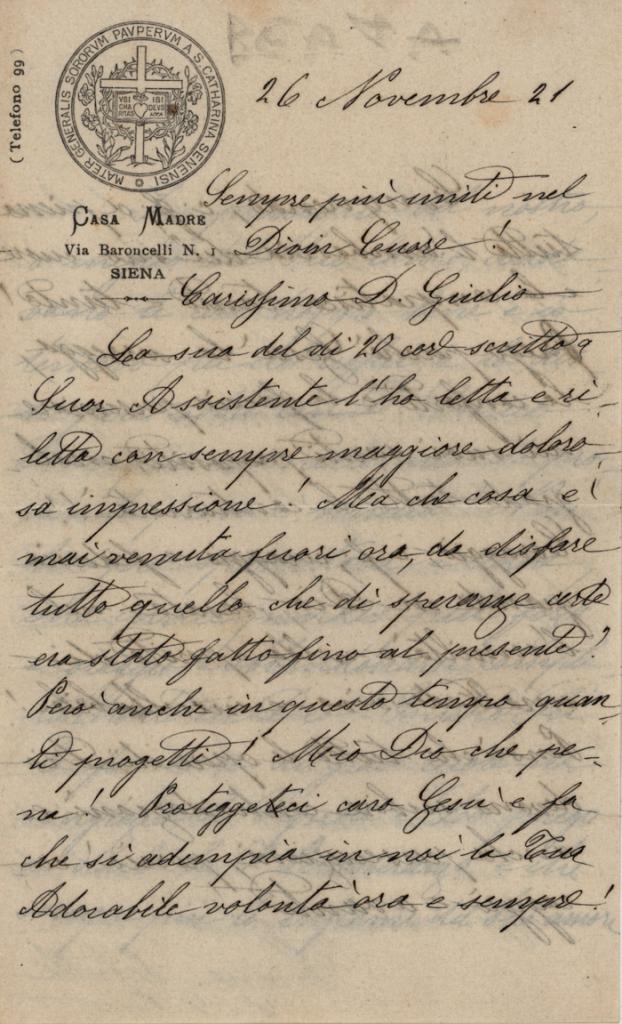 (Telefono 99)
MATER GENERALIS SORORVM PAVPERVM A S. CATHARINA SENENSI
VBI CHARITAS IBI DEVS
26 Novembre 21
CASA MADRE
Via Baroncelli N. 1
SIENA
Sempre più uniti nel
Divin Cuore!
Carissimo D. Giulio
La sua del dì 20 così scritta a
Suor Assistente l'ho letta e ri-
letta con sempre maggiore doloro-
sa impressione! Ma che cosa è
mai venuta fuori ora, da disfare
tutto quello che di speranze certe
era stato fatto fino al presente?
Però anche in questo tempo quan-
ti progetti! Mio Dio che pe-
na! Proteggeteci caro Gesù e fa
che si adempia in noi la Tua
Adorabile volontà ora e sempre!